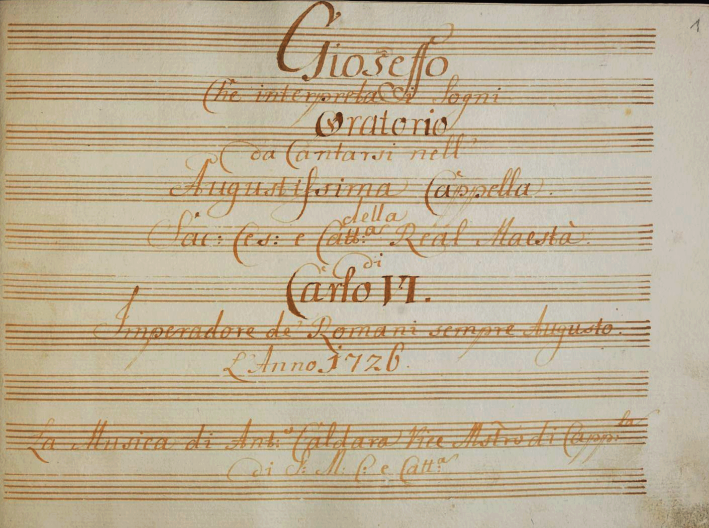 1
Gioseffo
Che interpreta i Sogni
Oratorio
da Cantarsi nell'
Augustissima Cappella
della
Sac: Ces: e Catt:a Real Maestà.
di
Carlo VI.
Imperadore de' Romani sempre Augusto.
L'Anno 1726.
La Musica di Ant:o Caldara Vice Mstro di Capp:la
di S: M: C: e Catt:a